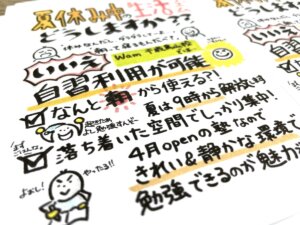 夏休み中 生活
どうしますか??
いいえ
Wam
自習利用が可能
なんと 朝から使える?!
夏は9時から開放します
落ち着いた空間でしっかり集中!
4月openの塾なので
きれい&静かな環境で
勉強できるのが魅力
よおし!
やったる!!